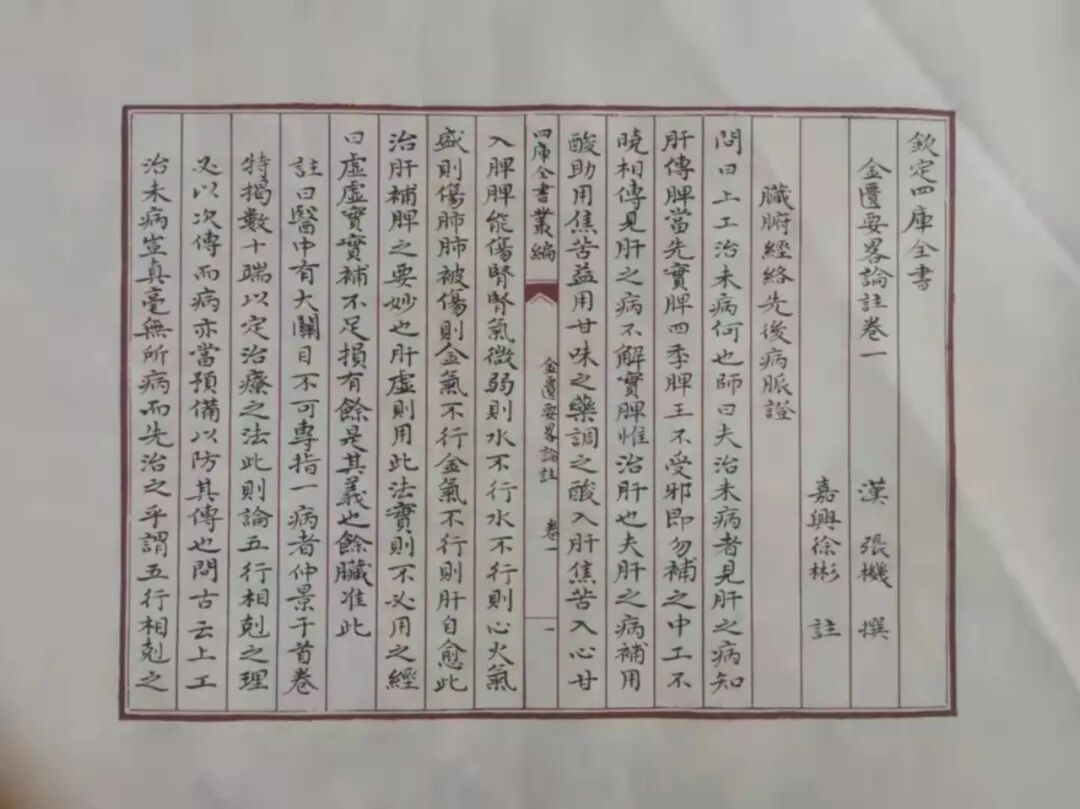 欽定四庫全書
金匱要畧論註卷一
漢 張機 撰
嘉興徐彬 註
臟腑經絡先後病脈證
問曰上工治未病何也師曰夫治未病者見肝之病知
肝傳脾當先實脾四季脾王不受邪即勿補之中工不
曉相傳見肝之病不解實脾惟治肝也夫肝之病補用
酸助用焦苦益用甘味之藥調之酸入肝焦苦入心甘
四庫全書叢編
金匱要畧論註 卷一
一
入脾脾能傷腎腎氣微弱則水不行水不行則心火氣
盛則傷肺肺被傷則金氣不行金氣不行則肝自愈此
治肝補脾之要妙也肝虛則用此法實則不必用之經
曰虛虛實實補不足損有餘是其義也餘臟准此
註曰醫中有大關目不可專指一病者仲景于首卷
特揭數十端以定治療之法此則論五行相剋之理
必以次傳而病亦當預備以防其傳也問古云上工
治未病豈真毫無所病而先治之乎謂五行相剋之